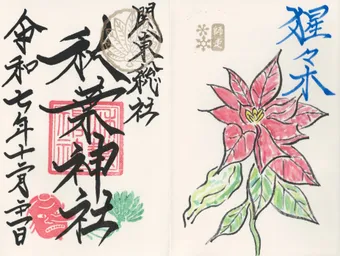 猩々木
師走
関東総社
秋葉神社
令和七年十二月